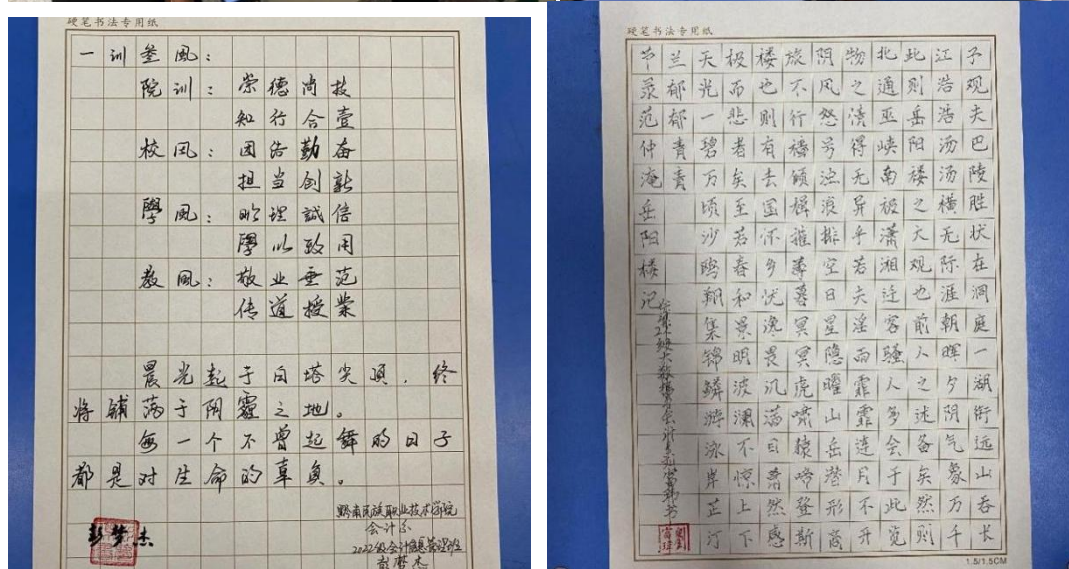 硬笔书法专用纸
一训叁風：
院训：崇德尚技
知行合壹
校風：团结勤奋
担当创新
學風：明理誠信
學以致用
教風：敬业垂范
传道授業
晨光起于白塔尖顶，终
将铺满于阴霾之地。
每一个不曾起舞的日子
都是对生命的辜负。
彭梦杰
黔南民族职业技术学院
会计系
2022级会计信息管理班
彭梦杰
硬笔书法专用纸
予观夫巴陵胜状在洞庭一湖衔远山吞长
江浩浩汤汤横无际涯朝晖夕阴气象万千
此则岳阳楼之大观也前人之述备矣然则
北通巫峡南极潇湘迁客骚人多会于此览
物之情得无异乎若夫淫雨霏霏连月不开
阴风怒号浊浪排空日星隐曜山岳潜形商
旅不行樯倾楫摧薄暮冥冥虎啸猿啼登斯
楼也则有去国怀乡忧谗畏讥满目萧然感
极而悲者矣至若春和景明波澜不惊上下
天光一碧万顷沙鸥翔集锦鳞游泳岸芷汀
兰郁郁青青
节录范仲淹岳阳楼记
1.5/1.5CM